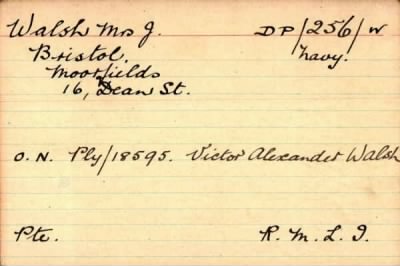 Walsh Mrs J. DP/256/W
Bristol, Navy.
Moorfields
16, Dean St.
O.N. Ply/18595. Victor Alexander Walsh
Pte. R. M. L. I.